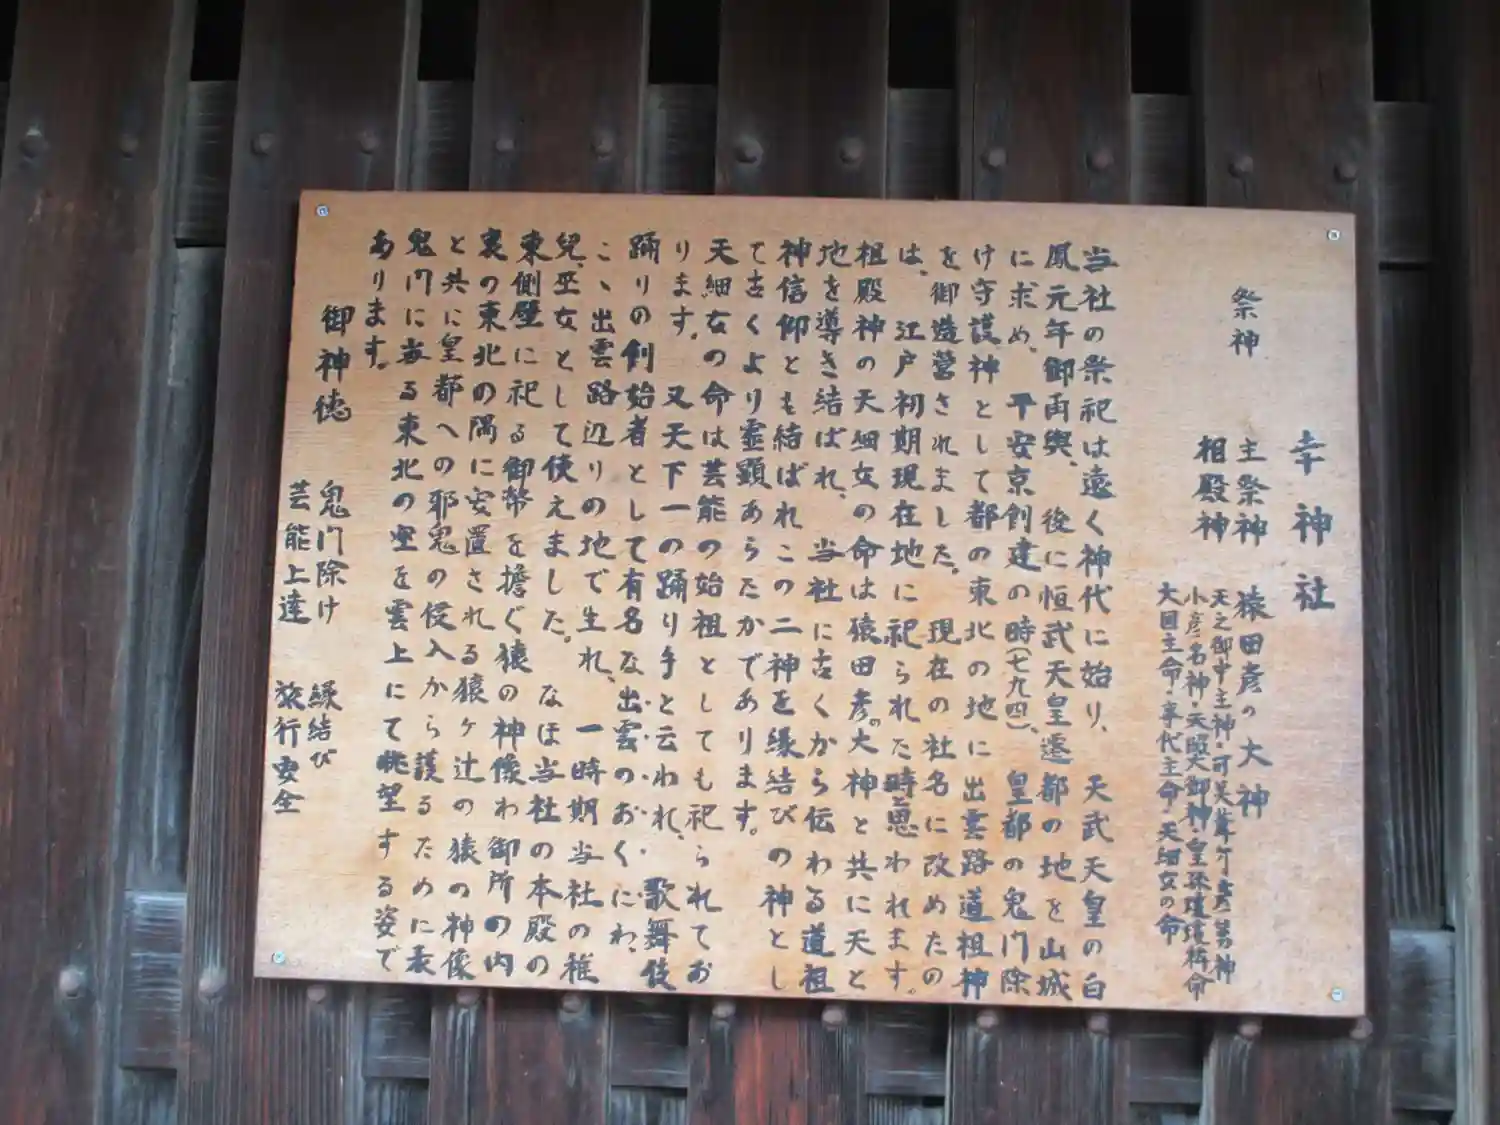 幸神社
祭神
主祭神 猿田彦の大神
相殿神 天之御中主神・可美葦牙彦舅神
小彦名神・天照大御神・皇孫瓊瓊杵命
大国主命・事代主命・天細女の命
当社の祭祀は遠く神代に始り、天武天皇の白
鳳元年御再興、後に恒武天皇遷都の地を山城
に求め、平安京創建の時(七九四)、皇都の鬼門除
け守護神として都の東北の地に出雲路道祖神
を御造営されました。現在の社名に改めたの
は、江戸初期現在地に祀られた時と思われます。
祖殿神の天細女の命は猿田彦の大神と共に天と
地を導き結ばれ、当社に古くから伝わる道祖
神信仰とも結ばれこの二神を縁結びの神とし
て古くより霊顕あらたかであります。
天細女の命は芸能の始祖としても祀られてお
ります。又天下一の踊り手と云われ、歌舞伎
踊りの創始者として有名な出雲のおくにわ、
こゝ出雲路辺りの地で生れ、一時期当社の稚
児、巫女として使えました。なほ当社の本殿の
東側壁に祀る御幣を擔ぐ猿の神像わ御所の内
裏の東北の隅に安置される猿ヶ辻の猿の神像
と共に皇都への邪鬼の侵入から護るために表
鬼門に当る東北の空を雲上にて眺望する姿で
あります。
御神徳 鬼門除け 縁結び
芸能上達 旅行安全